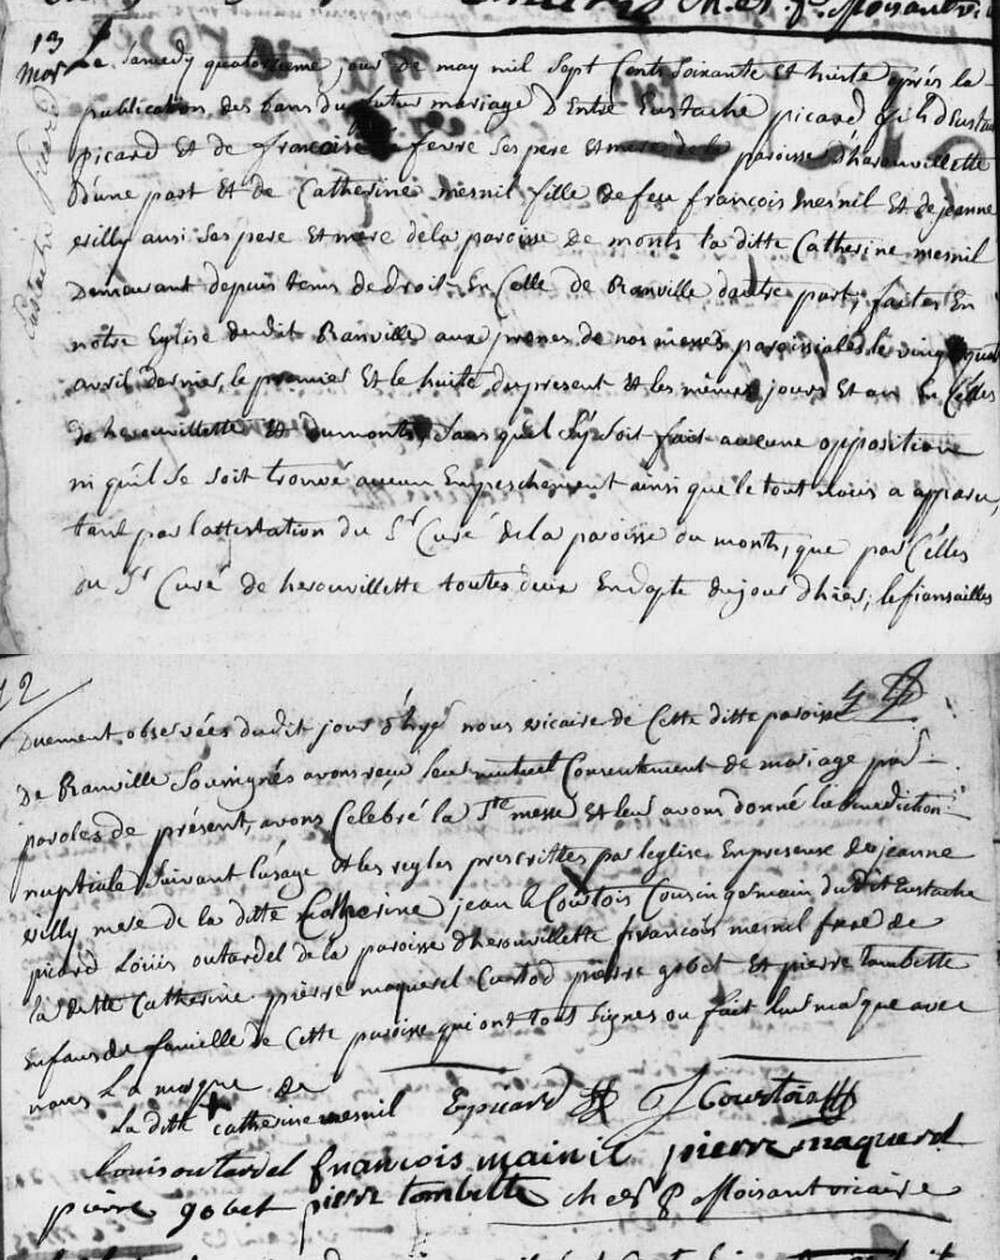 13
mar
Le samedy quatorzieme jour de may mil sept cents soixante et huite après la
publication des bans du futur mariage d'Entre Eustache picard fils d'Eustache
picard et de francoise le fevre ses pere et mere de la paroisse d'herouvillette
d'une part et de Catherine mesnil fille de feu francois mesnil et de jeanne
villy ausi ses pere et mere de la paroisse de monts la ditte Catherine mesnil
Demeurant depuis tems de droit En Celle de Ranville dautre part, faites En
notre Eglise dudit Ranville aux prones de nos messes paroissiales le vingt quatre
avril dernier, le premier Et le huite du present et les mêmes jours et an En Celles
de herouvillette et dumonts, sans quel s'y soit fait aucune opposition
ni qu'il se soit trouvé aucun Empeschement ainsi que le tout nous a apparu,
tant par l'attestation du Sr Curé de la paroisse du monts, que par Celles
du Sr Curé de herouvillette toutes deux En dapte du jour d'hier, les fiansailles
12
Duement observées dudit jour d'hyer nous vicaire de Cette ditte paroisse
De Ranville Soussignés avons reçu leur mutuel Consentement de mariage par
paroles de présent, avons Celebré la Ste messe et leur avons donné la benediction
nuptiale suivant l'usage et les regles prescrittes par leglise En presence de jeanne
villy mere de la ditte Catherine, jean le Courtois Cousin germain du dit Eustache
picard Loüis outardel de la paroisse d'herouvillette francois mesnil frere de
la ditte Catherine pierre maquerel Custod pierre gobet et pierre tombette
enfans de famille de Cette paroisse qui ont tous signes ou fait leur marque avec
nous La marque de
La ditte catherine mesnil Epicard J Courtois
louis outardel francois mainil pierre maquerel
pierre gobet pierre tombette Moisant vicaire